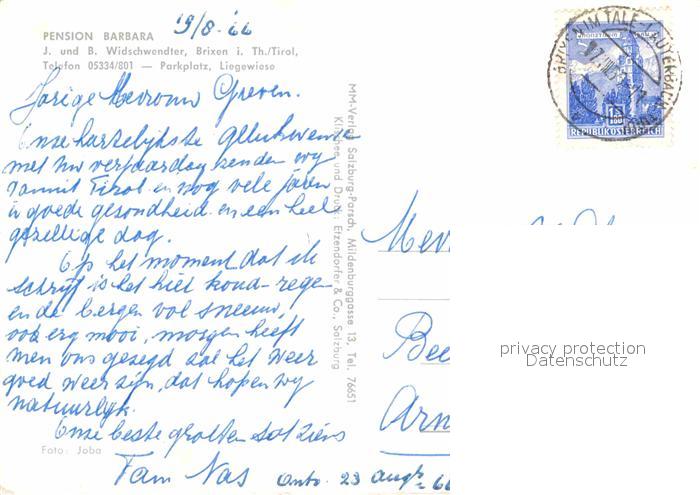 19/8-66
PENSION BARBARA
J. und B. Widschwendter, Brixen i. Th./Tirol,
Telefon 05334/801 — Parkplatz, Liegewiese
Jarige Mevrouw Greven.
Onze hartelijkste Gelukwensen
met Uw verjaardag zenden wy
vanuit Tirol en nog vele jaren
in goede gezondheid en een heel
gezellige dag.
Op het moment dat ik
schrijf is het hier koud - regen
en de bergen vol sneeuw,
ook erg mooi, morgen heeft
men ons gezegd zal het weer
goed weer zijn, dat hopen wy
natuurlyk.
Onze beste groeten tot ziens
Foto: Joba
Fam Nas
Ontv. 23 aug - 66
MM-Verlag Salzburg-Parsch, Mildenburggasse 13, Tel. 76651
Klischee und Druck: Etzendorfer & Co., Salzburg
REPUBLIK ÖSTERREICH
BRIXEN IM TALE-LAUTERBACH
Mev
Bee
Arn
privacy protection
Datenschutz